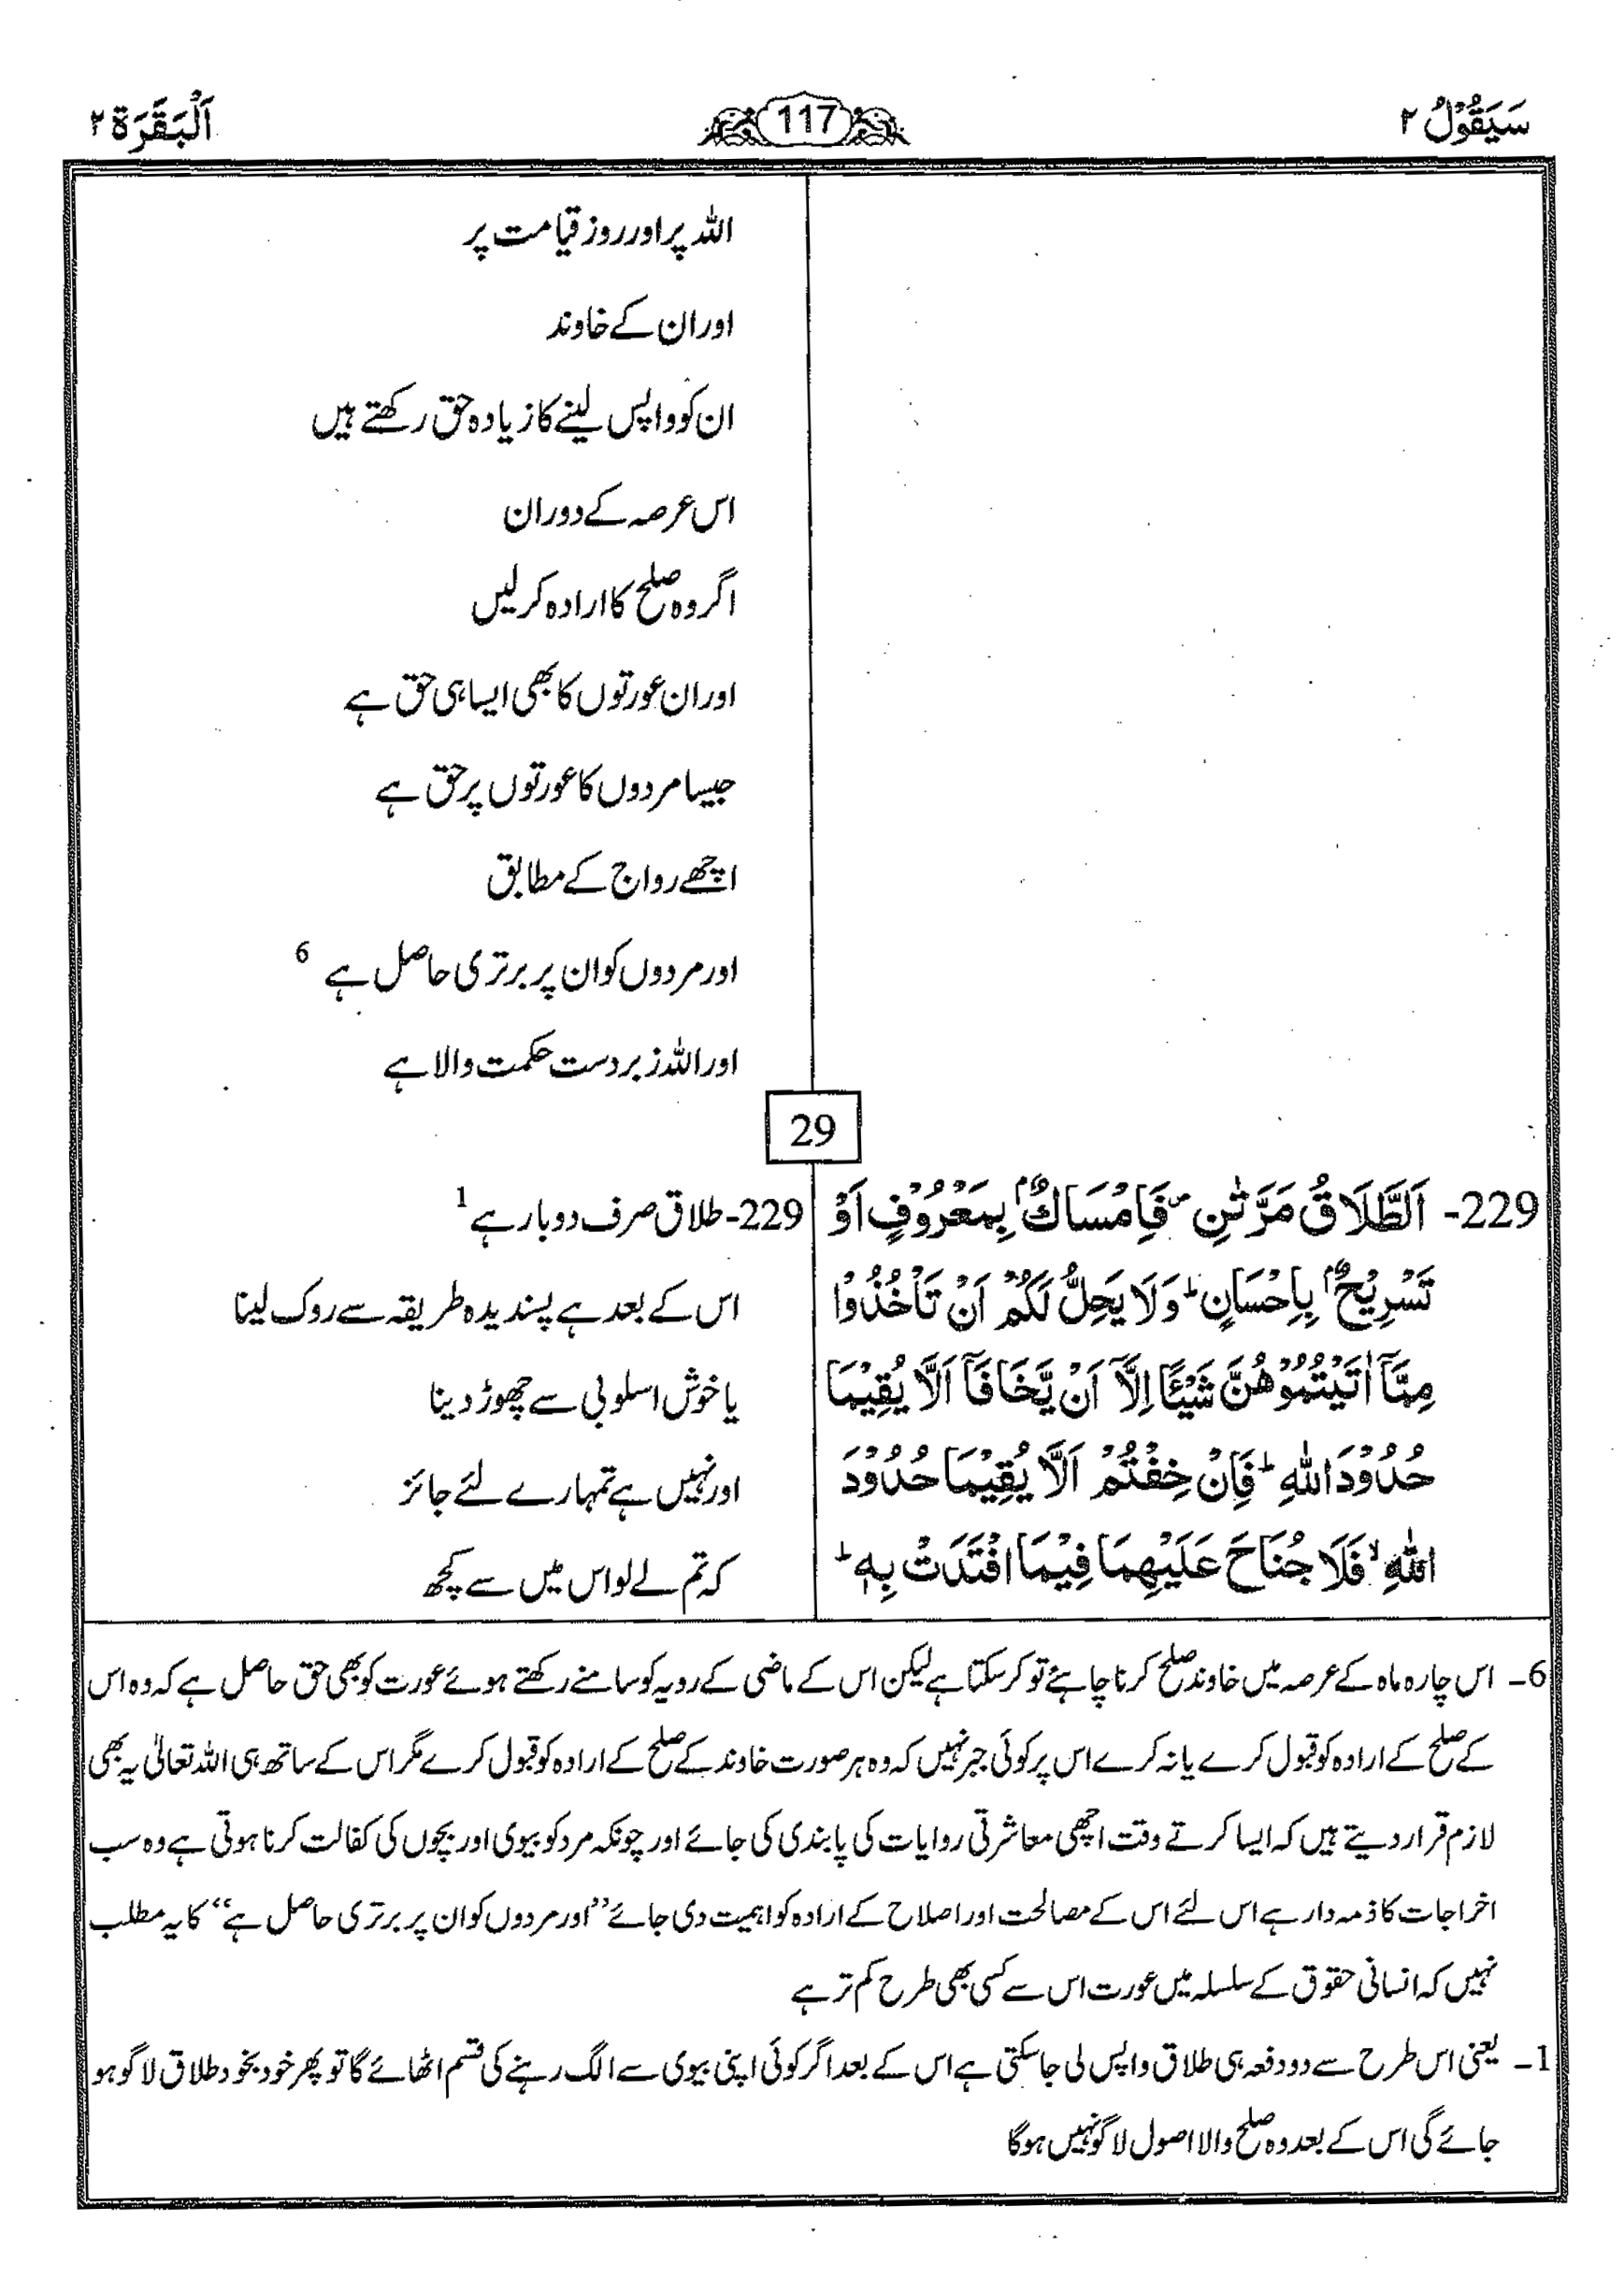 سَيَقُوْلُ ٢
117
اَلْبَقَرَة ٢
اللہ پر اور روز قیامت پر
اور ان کے خاوند
ان کو واپس لینے کا زیادہ حق رکھتے ہیں
اس عرصہ کے دوران
اگر وہ صلح کا ارادہ کر لیں
اور ان عورتوں کا بھی ایسا ہی حق ہے
جیسا مردوں کا عورتوں پر حق ہے
اچھے رواج کے مطابق
اور مردوں کو ان پر برتری حاصل ہے 6
اور اللہ زبردست حکمت والا ہے
29
229- اَلطَّلَاقُ مَرَّتٰنِ ۪ فَاِمْسَاكٌۢ بِمَعْرُوْفٍ اَوْ
تَسْرِيْحٌۢ بِاِحْسَانٍ ؕ وَلَا يَحِلُّ لَكُمْ اَنْ تَاْخُذُوْا
مِمَّاۤ اٰتَيْتُمُوْهُنَّ شَيْـًٔا اِلَّاۤ اَنْ يَّخَافَاۤ اَلَّا يُقِيْمَا
حُدُوْدَ اللّٰهِ ؕ فَاِنْ خِفْتُمْ اَلَّا يُقِيْمَا حُدُوْدَ
اللّٰهِ ۙ فَلَا جُنَاحَ عَلَيْهِمَا فِيْمَا افْتَدَتْ بِهٖ ؕ
229- طلاق صرف دوبار ہے 1
اس کے بعد ہے پسندیدہ طریقہ سے روک لینا
یا خوش اسلوبی سے چھوڑ دینا
اور نہیں ہے تمہارے لئے جائز
کہ تم لے لو اس میں سے کچھ
6- اس چارہ ماہ کے عرصہ میں خاوند صلح کرنا چاہئے تو کر سکتا ہے لیکن اس کے ماضی کے رویہ کو سامنے رکھتے ہوئے عورت کو بھی حق حاصل ہے کہ وہ اس
کے صلح کے ارادہ کو قبول کرے یا نہ کرے اس پر کوئی جبر نہیں کہ وہ ہر صورت خاوند کے صلح کے ارادہ کو قبول کرے مگر اس کے ساتھ ہی اللہ تعالیٰ یہ بھی
لازم قرار دیتے ہیں کہ ایسا کرتے وقت اچھی معاشرتی روایات کی پابندی کی جائے اور چونکہ مرد کو بیوی اور بچوں کی کفالت کرنا ہوتی ہے وہ سب
اخراجات کا ذمہ دار ہے اس لئے اس کے مصالحت اور اصلاح کے ارادہ کو اہمیت دی جائے ’’اور مردوں کو ان پر برتری حاصل ہے‘‘ کا یہ مطلب
نہیں کہ انسانی حقوق کے سلسلہ میں عورت اس سے کسی بھی طرح کم تر ہے
1- یعنی اس طرح سے دو دفعہ ہی طلاق واپس لی جا سکتی ہے اس کے بعد اگر کوئی اپنی بیوی سے الگ رہنے کی قسم اٹھائے گا تو پھر خود بخود طلاق لاگو ہو
جائے گی اس کے بعد وہ صلح والا اصول لاگو نہیں ہوگا